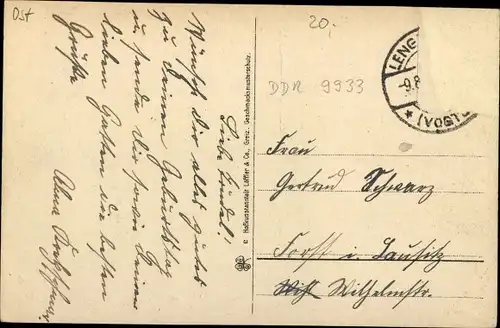 Ost
20,-
DDR 9933
LENG
-9.8
* (VOGTL
Liebe
Wünsche Dir alles gutes
zu Deinem Geburtstag
u. sende Dir sowie Deinem
lieben Gatten die besten
Grüße
Alma
© Hofkunstanstalt Löffler & Co., Greiz. Geschmacksmusterschutz.
Frau
Gertrud Schwarz
Forst i. Lausitz
Wilhelmstr.